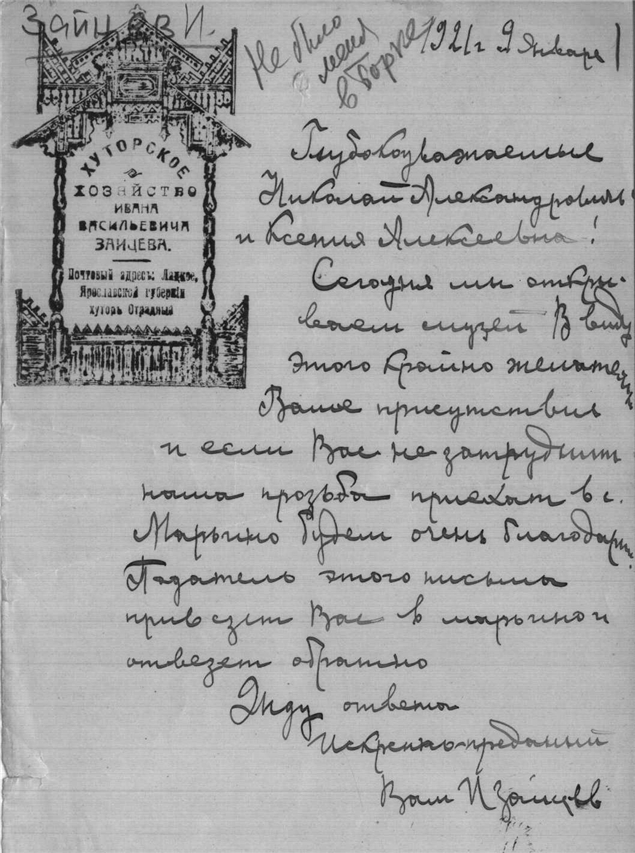 Зайцев И.
Не было
меня
в Борке
1921 г 9 Января
ХУТОРСКОЕ
ХОЗЯЙСТВО
ИВАНА
ВАСИЛЬЕВИЧА
ЗАЙЦЕВА.
Почтовый адресъ: Лацкое,
Ярославской губернiи
хуторъ Отрадный
Глубокоуважаемые
Николай Александрович
и Ксения Алексеевна!
Сегодня мы откры-
ваем музей В виду
этого крайно желательн
Ваше присутствия
и если Вас не затруднит
наша прозьба приехат в с.
Марьино будем очень благодарн.
Податель этого письма
привезет Вас в марьино и
отвезет обратно
Жду ответа
Искренно преданий
Вам И Зайцев